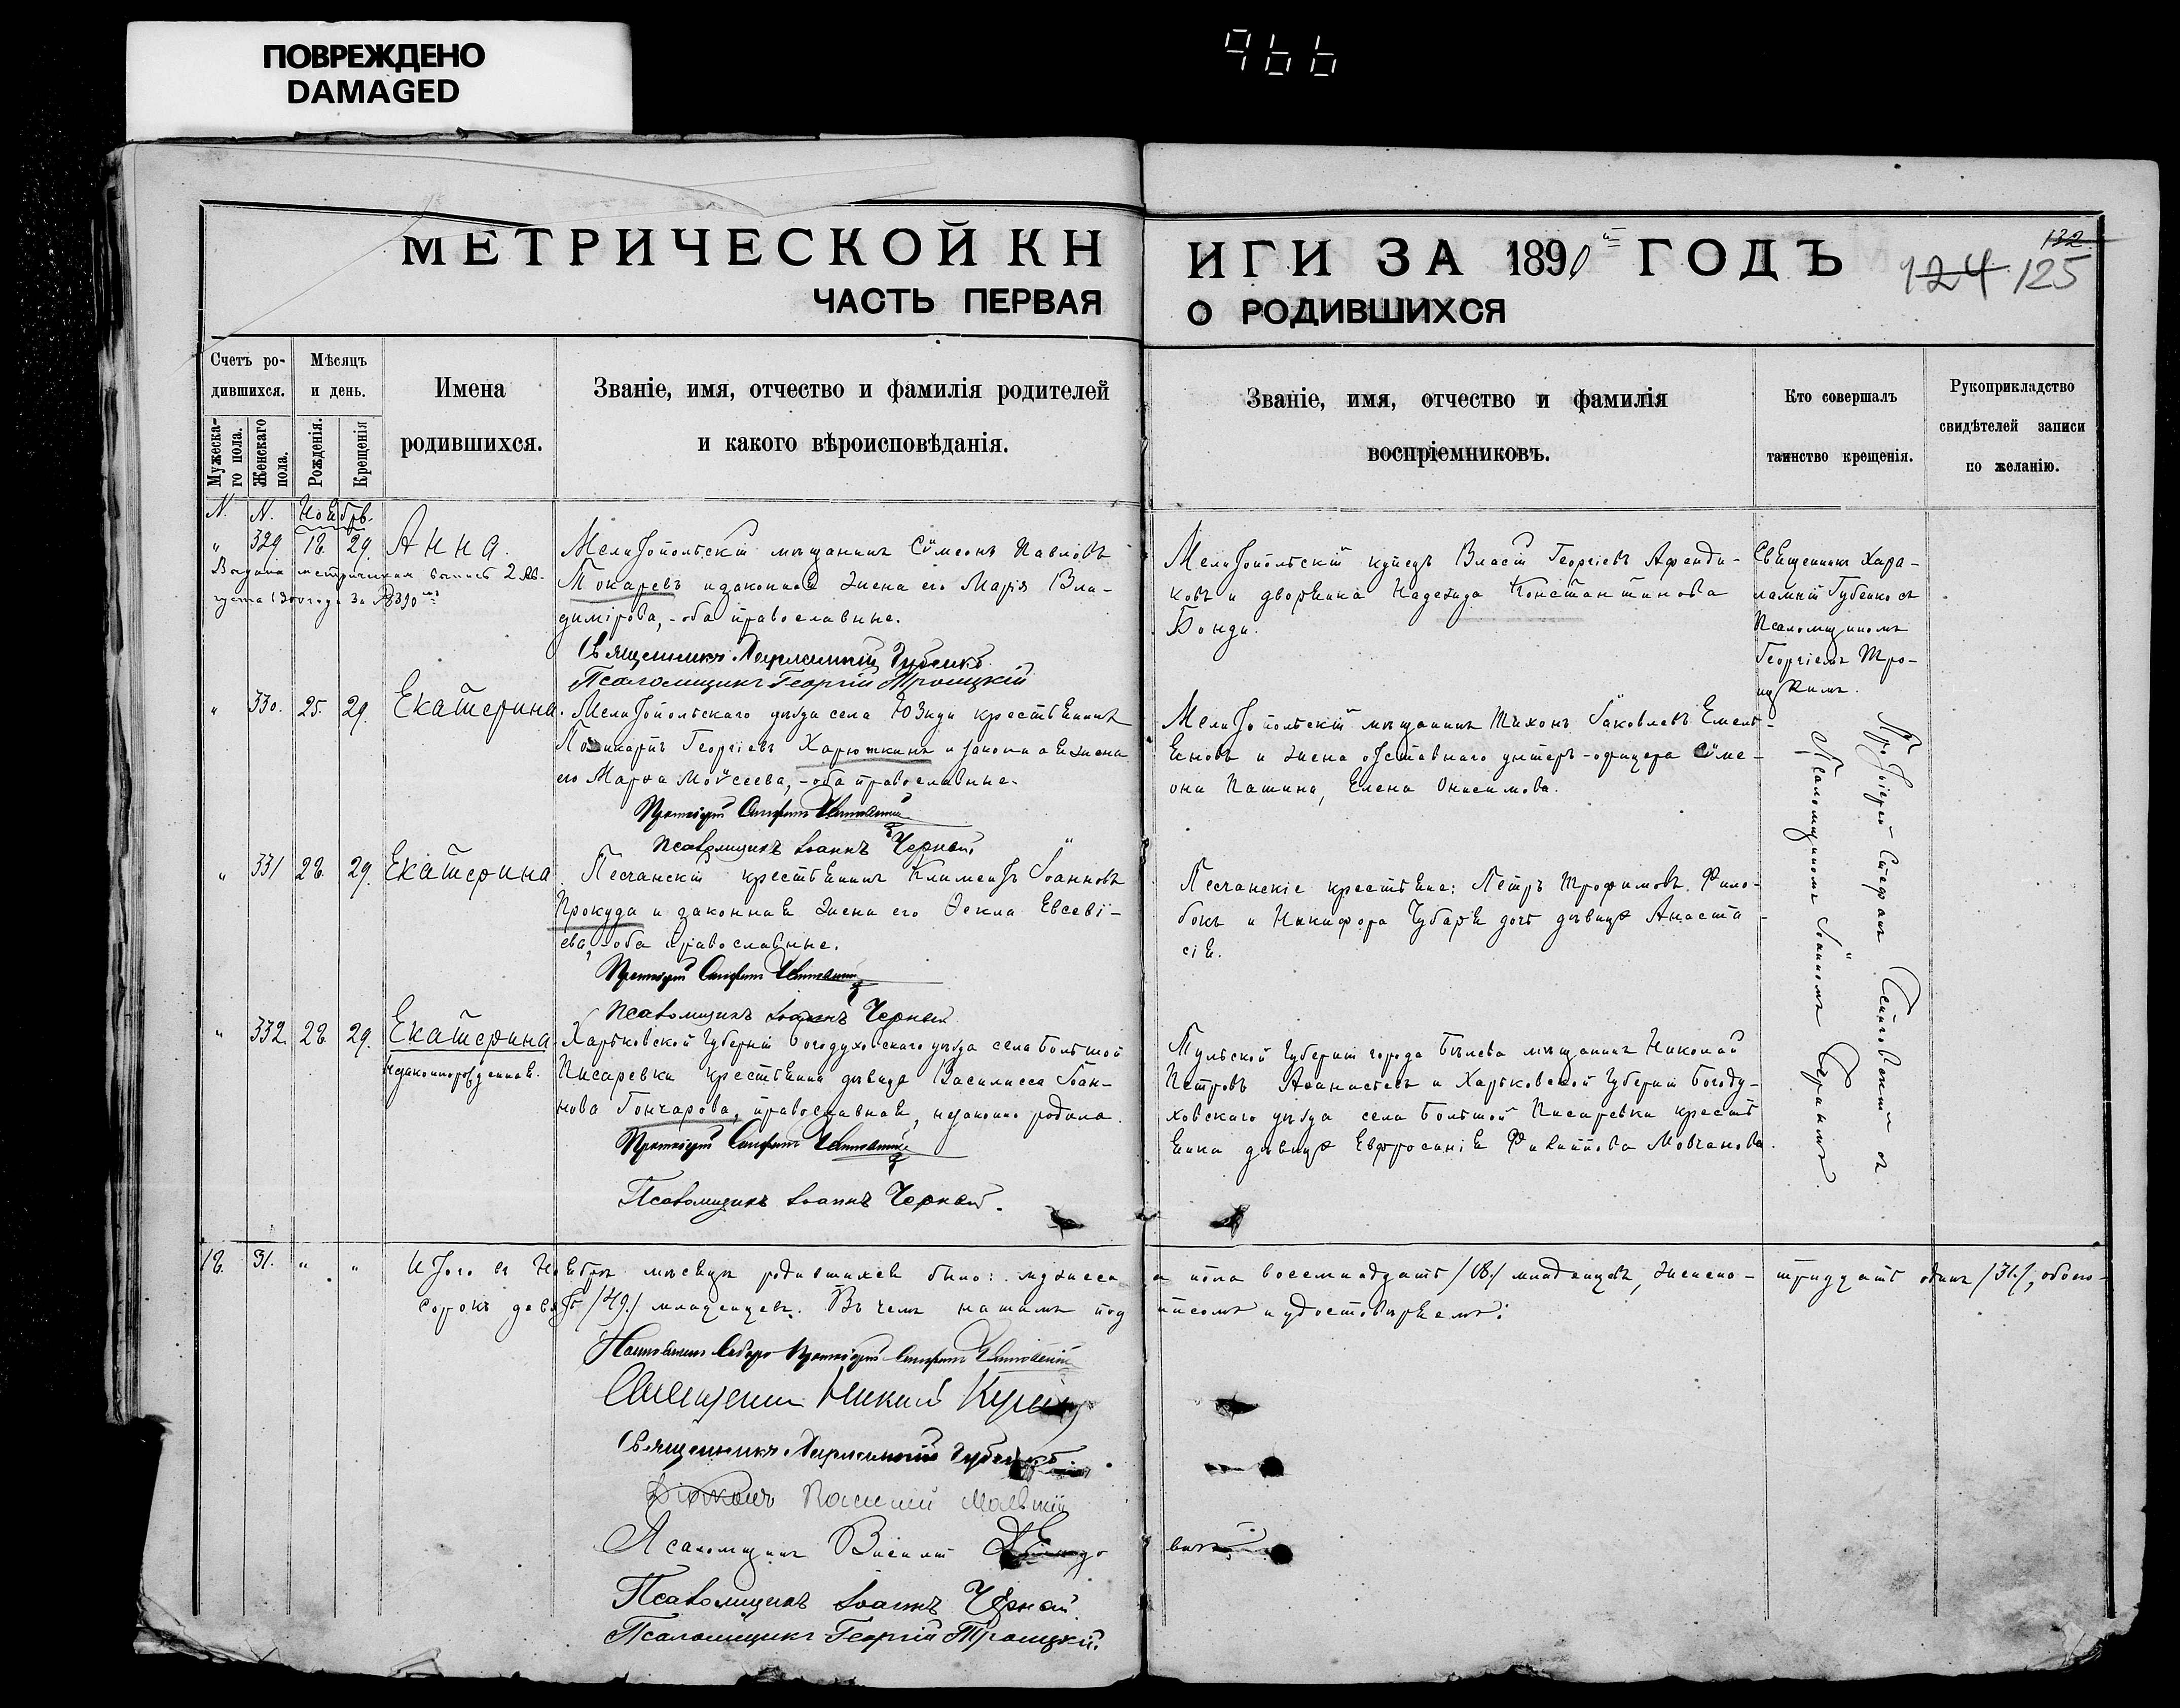 ПОВРЕЖДЕНО
DAMAGED
966
МЕТРИЧЕСКОЙ КН
ЧАСТЬ ПЕРВАЯ
ИГИ ЗА 1890й ГОДЪ
О РОДИВШИХСЯ
132
124 125
Счетъ ро-
дившихся.
Мужеска-
го пола.
Женскаго
пола.
Мѣсяцъ
и день.
Рожденія.
Крещенія
Имена
родившихся.
Званіе, имя, отчество и фамилія родителей
и какого вѣроисповѣданія.
Званіе, имя, отчество и фамилія
воспріемниковъ.
Кто совершалъ
таинство крещенія.
Рукоприкладство
свидѣтелей записи
по желанію.
N. N. Ноябрь.
" 329. 18. 29. Анна.
Выдана метрическая выпись 2 Ав-
густа 1900 года за №8390
Мелитопольскій мѣщанинъ Сѵмеонъ Павловъ
Токаревъ и законная жена его Марія Вла-
димірова, - оба православные.
Священникъ Харлампій Губенко
Псаломщикъ Георгій Троицкій
Мелитопольскій купецъ Власій Георгіевъ Афенди-
ковъ и дворянка Надежда Константинова
Бонди.
Священникъ Хара-
лампій Губенко съ
Псаломщикомъ
Георгіемъ Тро-
ицкимъ.
" 330. 25. 29. Екатерина.
Мелитопольскаго уѣзда села Юзкуи крестьянинъ
Поликарпъ Георгіевъ Харюткинъ и законная жена
его Марѳа Моѵсеева, - оба православные.
Протоіерей Стефанъ
Псаломщикъ Іоаннъ Черный
Мелитопольскій мѣщанинъ Тихонъ Іаковлевъ Емель-
яновъ и жена отставного унтеръ-офицера Сѵме-
она Пашина, Елена Онисимова.
Протоіерей Стефанъ
съ
Псаломщикомъ Іоанномъ Чернымъ
" 331 28. 29. Екатерина
Песчанскій крестьянинъ Климентъ Іоанновъ
Прокуда и законная жена его Ѳекла Евсеві-
ева, - оба православные.
Протоіерей Стефанъ
Псаломщикъ Іоаннъ Черный
Песчанскіе крестьяне: Петръ Трофимовъ Фило-
бокъ и Никифора Чубаря дочь дѣвица Анаста-
сія.
" 332. 28. 29. Екатерина
Незаконнорожденная.
Харьковской Губерніи Богодуховскаго уѣзда села Большой
Писаревки крестьянка дѣвица Василисса Іоан-
нова Гончарова, православная, незаконно родила.
Протоіерей Стефанъ
Псаломщикъ Іоаннъ Черный.
Тульской Губерніи города Бѣлева мѣщанинъ Николай
Петровъ Аѳанасьевъ и Харьковской Губерніи Богоду-
ховскаго уѣзда села Большой Писаревки кресть
янка дѣвица Евфросинія Филиппова Мовчанова.
18. 31. " " Итого въ Ноябрѣ мѣсяцѣ родившихся было: мужеска го пола восемнадцать /18./ младенцевъ, женско- тридцать одинъ /31./, обоего-
сорокъ девять /49./ младенцевъ. Въ чемъ нашимъ под писомъ и удостовѣряемъ:
Настоятель Собора Протоіерей Стефанъ
Священникъ
Священникъ Харлампій Губенко.
Діаконъ Василій
Псаломщикъ Василій
Псаломщикъ Іоаннъ Черный.
Псаломщикъ Георгій Троицкій.